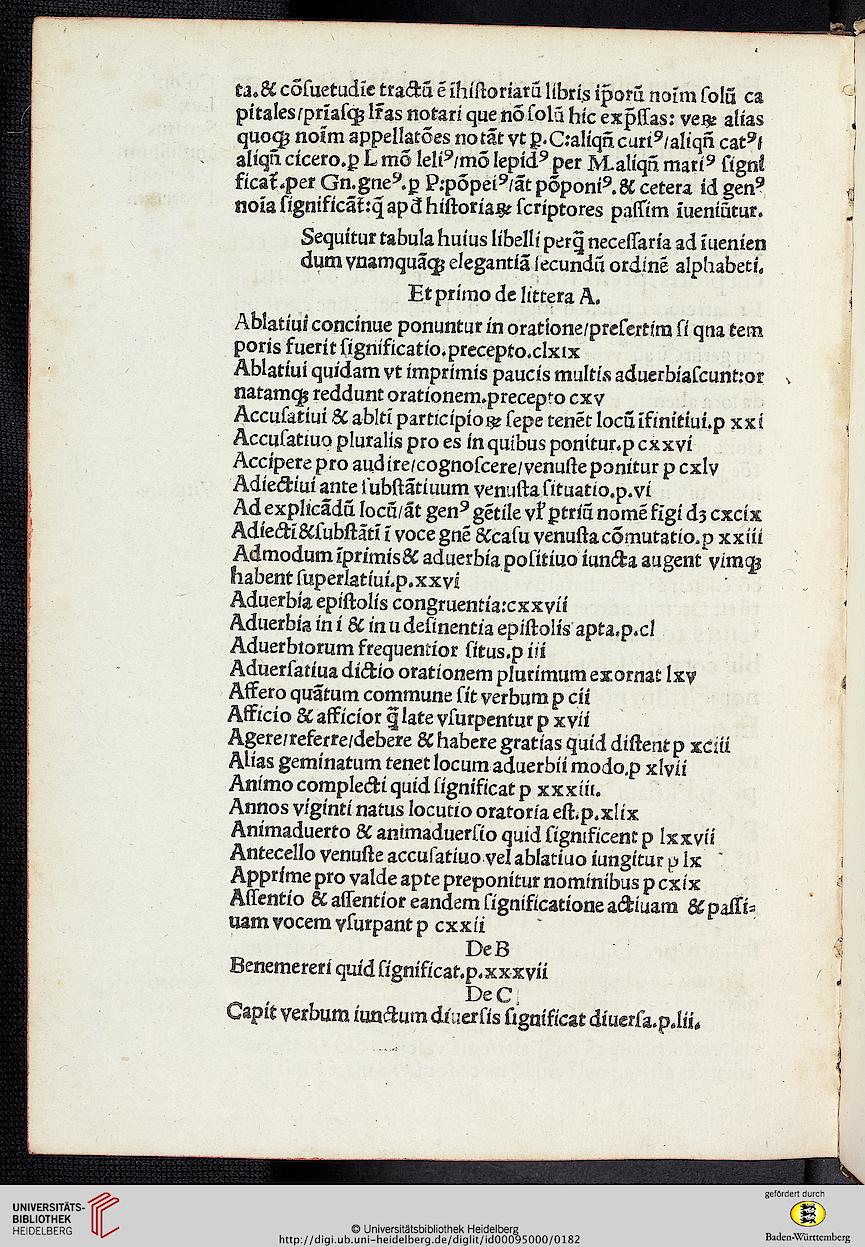 ta.& cõſuetudīe tractū ē īhiſtoriarū libris ip̄orū noīm ſolū ca
pitales/prīaſqꝫ lr̄as notari que nõ ſolū hic exp̄ſſas: veꝝ alias
quoqꝫ noīm appellatões notāt vt p̲.C:aliqn̄ curiꝰ/aliqn̄ catꝰ/
aliqn̄ cicero.ꝑ L mõ leliꝰ/mõ lepidꝰ per M.aliqn̄ mariꝰ ſigni
ficat̄.per Gn.gneꝰ.ꝑ P:põpeiꝰ/āt põponiꝰ.& cetera id genꝰ
noīa ſignificāt̄:q̄ apd̄ hiſtoriaꝝ ſcriptores paſſim īueniūtur.
Sequitur tabula huius libelli perq̄ꝫ neceſſaria ad īuenien
dum vnamquāqꝫ elegantiā ſecundū ordinē alphabeti.
Et primo de littera A.
Ablatiui concinue ponuntur in oratione/preſertim ſi qua tem
poris fuerit ſignificatio.precepto.clxix
Ablatiui quidam vt imprimis paucis multis aduerbiaſcunt:or
natamqꝫ reddunt orationem.precepto cxv
Accuſatiui & ablti̅ participioꝝ ſepe tenēt locū īfinitiui.p xxi
Accuſatiuo pluralis pro es in quibus ponitur.p cxxvi
Accipere pro audire/cognoſcere/venuſte ponitur p cxlv
Adiectiui ante ſubſtātiuum venuſta ſituatio.p.vi
Ad explicādū locū/āt genꝰ gētile vl̕ ꝑtriū nomē figi dꝫ cxcix
Adiecti̅ &ſubſtāti̅ ī voce gnē &caſu venuſta cõmutatio.p xxiii
Admodum īprimis& aduerbia poſitiuo iuncta augent vimqꝫ
habent ſuperlatiui.p.xxvi
Aduerbia epiſtolis congruentia:cxxvii
Aduerbia in i & in u deſinentia epiſtolis apta.p.cl
Aduerbiorum frequentior ſitus.p iii
Aduerſatiua dictio orationem plurimum exornat lxv
Affero quātum commune ſit verbum p cii
Afficio & afficior q̄ꝫ late vſurpentur p xvii
Agere/referre/debere & habere gratias quid diſtent p xciii
Alias geminatum tenet locum aduerbii modo.p xlvii
Animo complecti quid ſignificat p xxxiii.
Annos viginti natus locutio oratoria eſt.p.xlix
Animaduerto & animaduerſio quid ſignificent p lxxvii
Antecello venuſte accuſatiuo vel ablatiuo iungitur p lx
Apprime pro valde apte preponitur nominibus p cxix
Aſſentio & aſſentior eandem ſignificatione actiuam & paſſi⸗
uam vocem vſurpant p cxxii
De B
Benemereri quid ſignificat.p.xxxvii
De C
Capit verbum iunctum diuerſis ſignificat diuerſa.p.lii.
UNIVERSITÄTS-
BIBLIOTHEK
HEIDELBERG
© Universitätsbibliothek Heidelberg
http://digi.ub.uni-heidelberg.de/diglit/id00095000/0182
gefördert durch
Baden-Württemberg